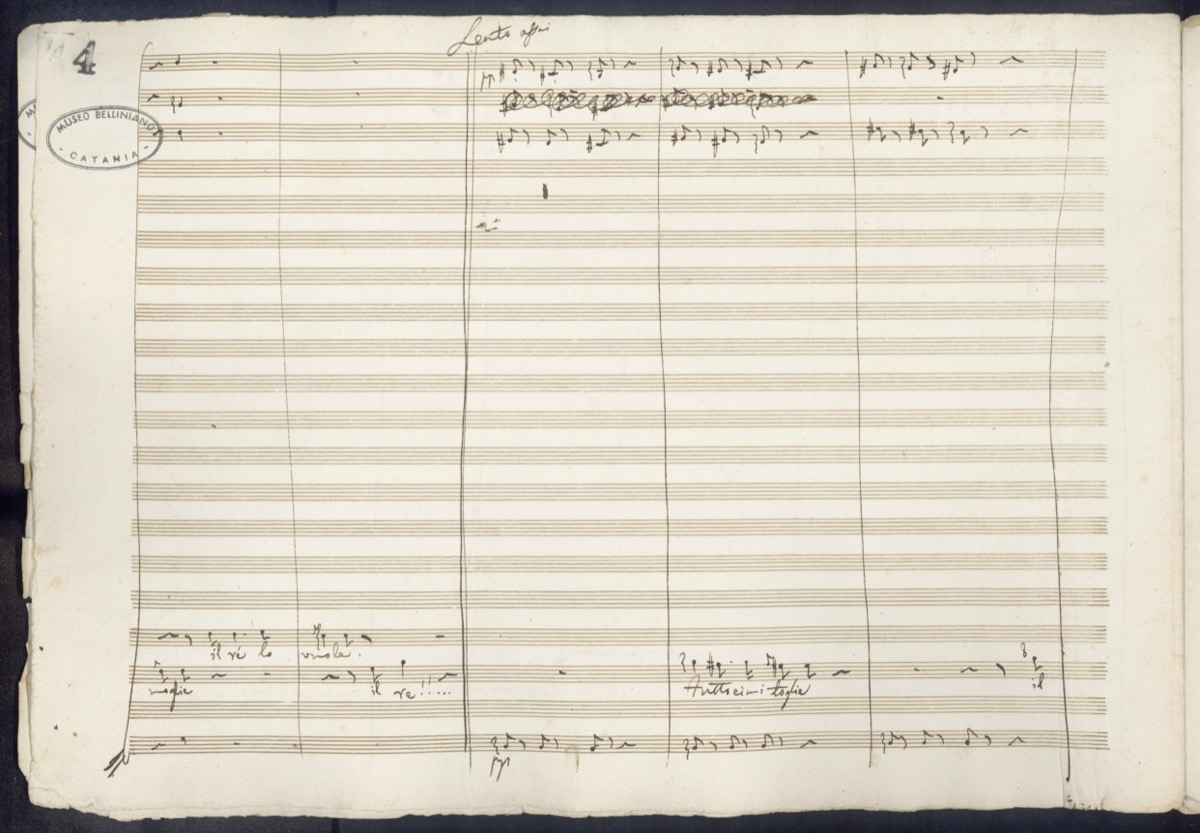 4
Lento assai
MUSEO BELLINIANO
- CATANIA -
pp
il re lo vuole.
moglie il re!!... Tutto ei mi toglie il
pp